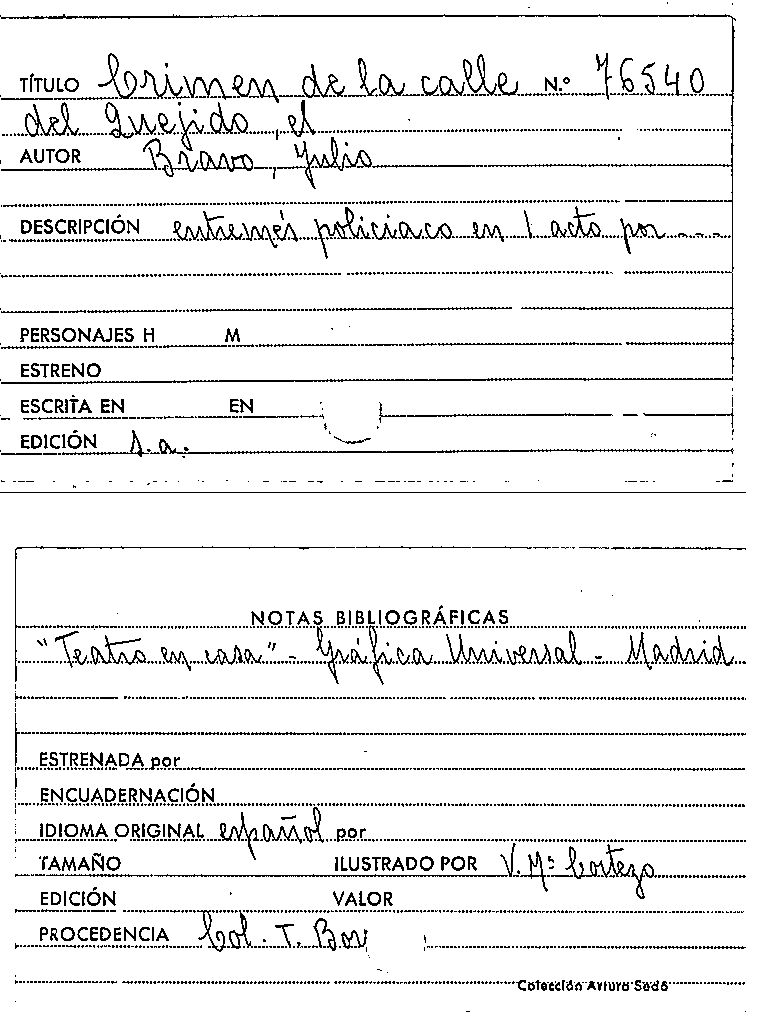 TÍTULO Crimen de la calle N.º 76540
del Quejido, el
AUTOR Bravo, Julio
DESCRIPCIÓN entremés policiaco en 1 acto por ----
PERSONAJES H M
ESTRENO
ESCRITA EN EN
EDICIÓN s.a.
NOTAS BIBLIOGRÁFICAS
"Teatro en casa" - Gráfica Universal - Madrid
ESTRENADA por
ENCUADERNACIÓN
IDIOMA ORIGINAL español por
TAMAÑO ILUSTRADO POR V. Mª Cortezo
EDICIÓN VALOR
PROCEDENCIA Col. T. Boy
Colección Arturo Sedó